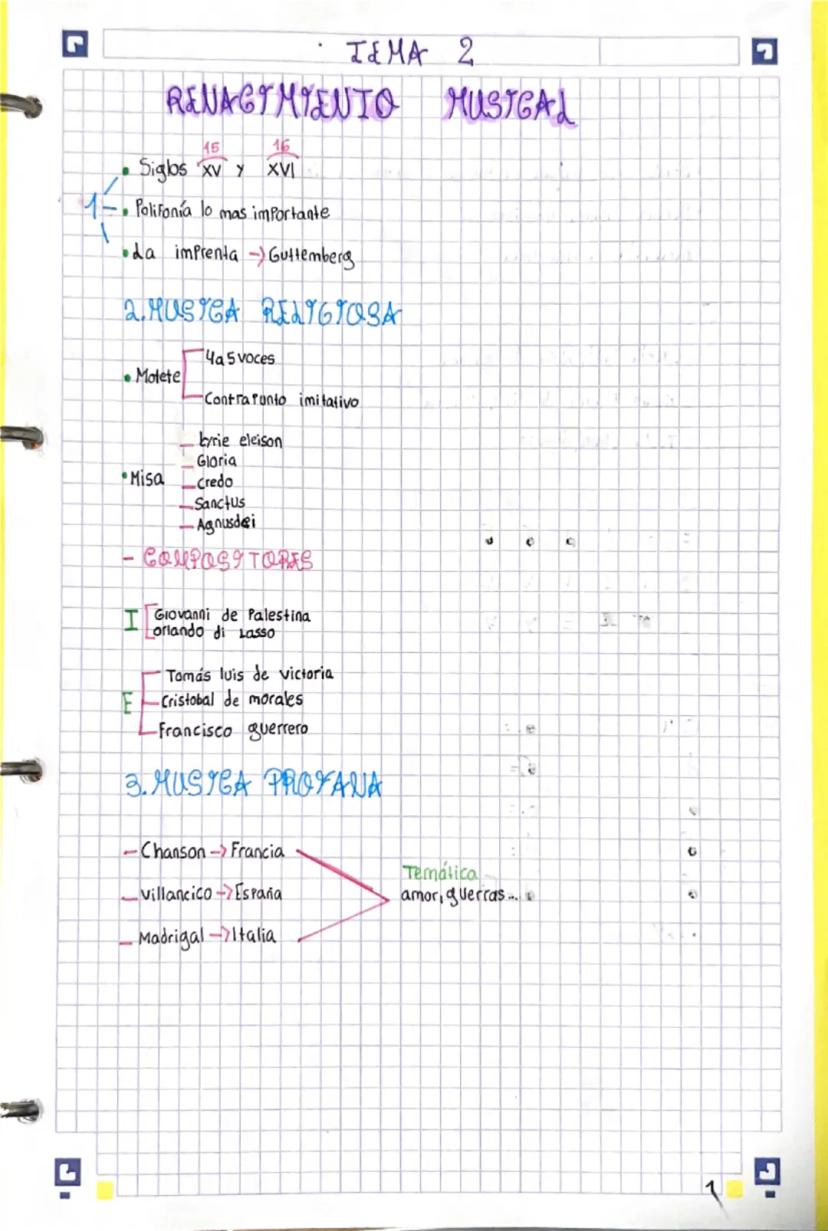 TEMA 2
RENACIMIENTO MUSICAL
15 16
1 - • Siglos XV y XVI
• Polifonía lo mas importante
• La imprenta → Guttemberg
2. MUSICA RELIGIOSA
4 a 5 voces
• Motete
Contrapunto imitativo
kyrie eleison
Gloria
• Misa - credo
Sanctus
Agnusdei
- COMPOSITORES
I Giovanni de Palestina
orlando di Lasso
Tomás luis de victoria
E Cristobal de morales
Francisco guerrero
3. MUSICA PROFANA
- Chanson → Francia
Temática
- Villancico → España amor, guerras...
- Madrigal → Italia
1